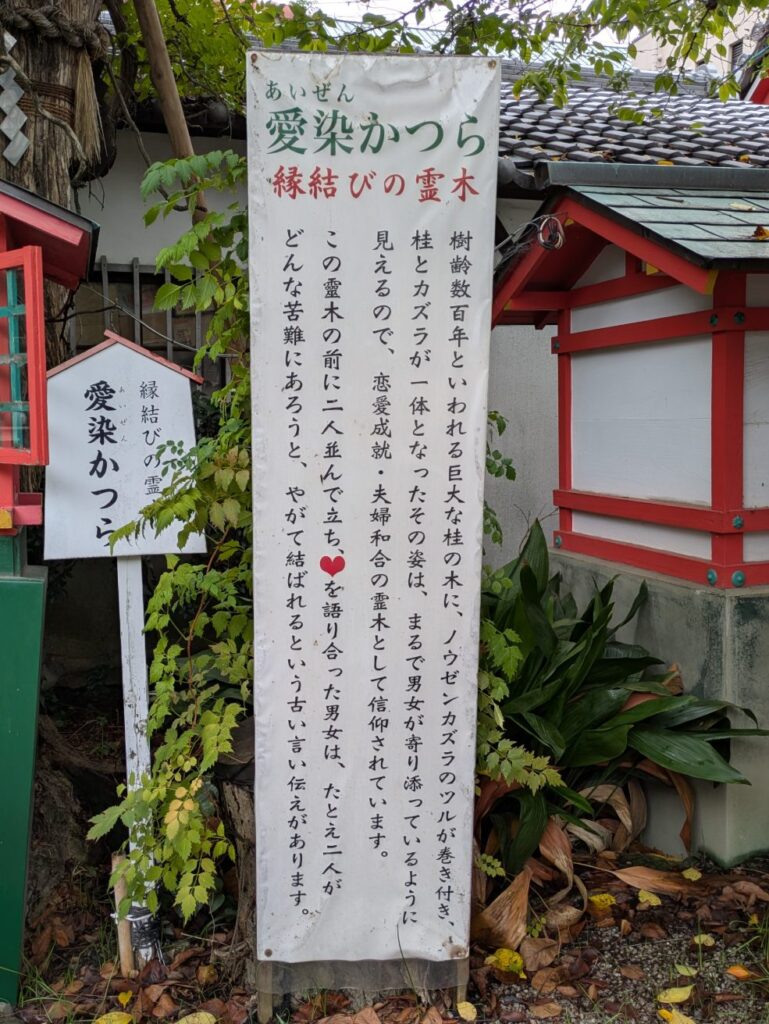 あいぜん
愛染かつら
縁結びの霊木
樹齢数百年といわれる巨大な桂の木に、ノウゼンカズラのツルが巻き付き、
桂とカズラが一体となったその姿は、まるで男女が寄り添っているように
見えるので、恋愛成就・夫婦和合の霊木として信仰されています。
この靈木の前に二人並んで立ち、❤を語り合った男女は、たとえ二人が
どんな苦難にあろうと、やがて結ばれるという古い言い伝えがあります。
縁結びの霊
あいぜん
愛染かつら